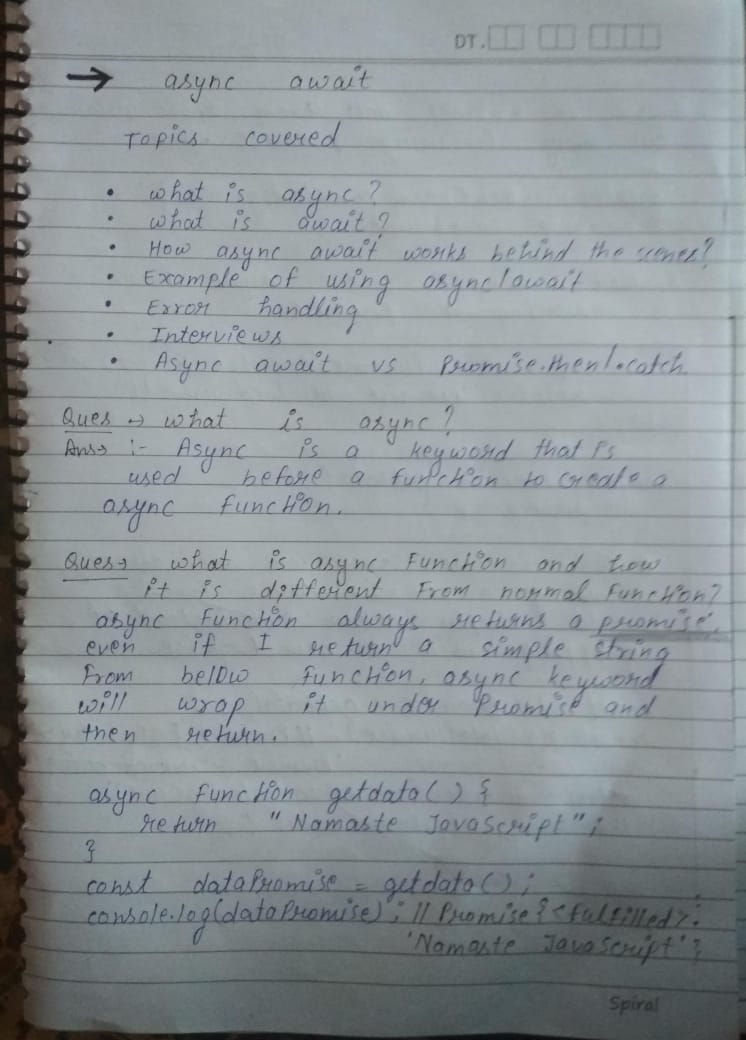 DT.
→ async await
Topics covered
• what is async?
• what is await?
• How async await works behind the scenes?
• Example of using async/await
• Error handling
• Interviews
• Async await vs Promise.then/.catch
Ques → what is async?
Ans → :- Async is a keyword that is
used before a function to create a
async function.
Ques → what is async function and how
it is different from normal function?
async function always returns a promise,
even if I return a simple string
from below function, async keyword
will wrap it under Promise and
then return.
async function getdata() {
return "Namaste JavaScript";
}
const dataPromise = getdata();
console.log(dataPromise); // Promise {<fulfilled>:
'Namaste JavaScript'}
Spiral